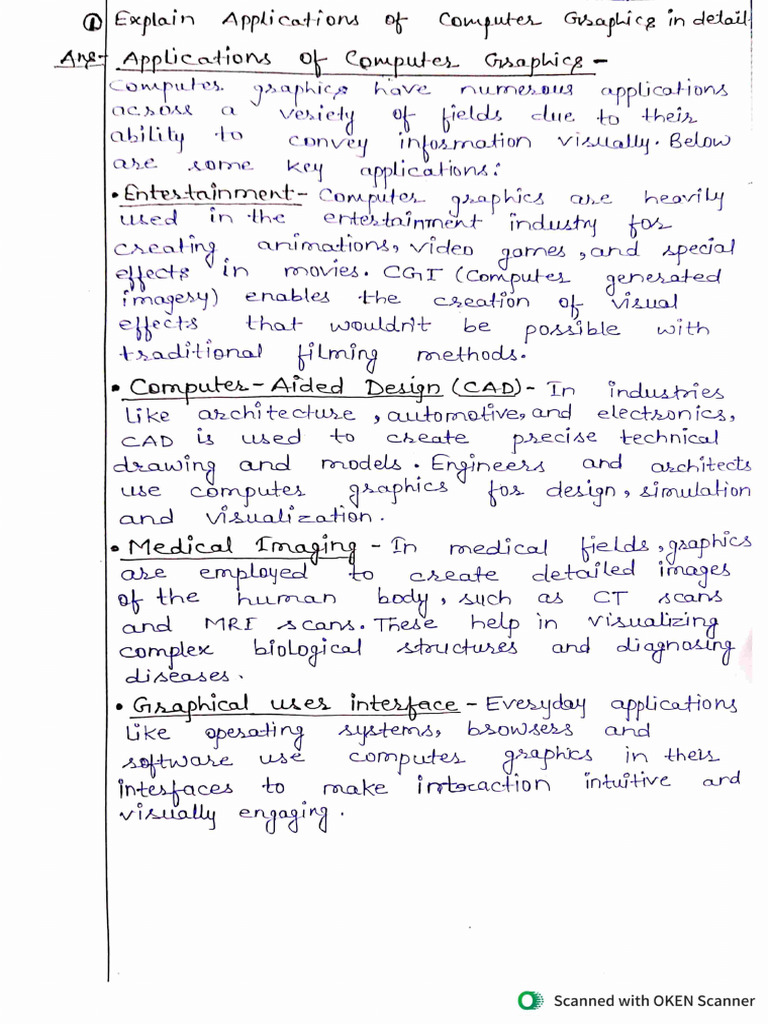 ① Explain Applications of Computer Graphics in detail.
Ans- Applications of Computer Graphics -
Computer graphics have numerous applications
across a veriety of fields due to their
ability to convey information visually. Below
are some key applications:
• Entertainment - Computer graphics are heavily
used in the entertainment industry for
creating animations, video games, and special
effects in movies. CGI (Computer generated
imagery) enables the creation of visual
effects that wouldn't be possible with
traditional filming methods.
• Computer-Aided Design (CAD) - In industries
like architecture, automotive, and electronics,
CAD is used to create precise technical
drawing and models. Engineers and architects
use computer graphics for design, simulation
and visualization.
• Medical Imaging - In medical fields, graphics
are employed to create detailed images
of the human body, such as CT scans
and MRI scans. These help in visualizing
complex biological structures and diagnosing
diseases.
• Graphical user interface - Everyday applications
like operating systems, browsers and
software use computer graphics in their
interfaces to make interaction intuitive and
visually engaging.
Scanned with OKEN Scanner